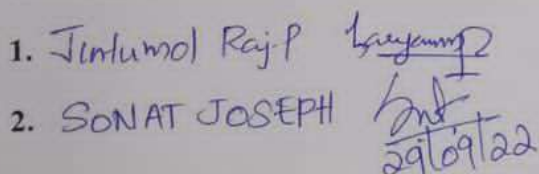 1. Jintumol Raj.P
2. SONAT JOSEPH
29/09/22